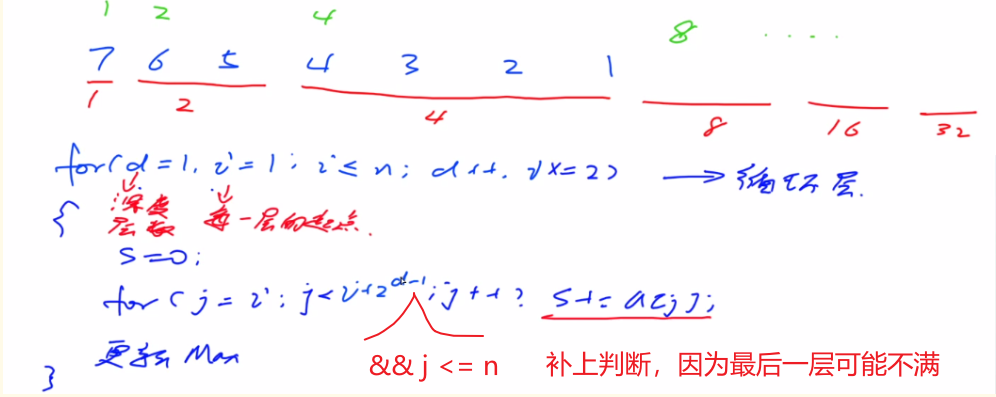 1 2 4 8 ....
7 6 5 4 3 2 1
1 2 4 8 16 32
for(d=1, i=1; i≤n; d++, i×=2) → 循环层.
{ 深度 每一层的起点.
层数
s=0;
for(j=i; j<i+2^{d-1}; j++) s+=a[j];
更新Max && j <= n 补上判断，因为最后一层可能不满
}